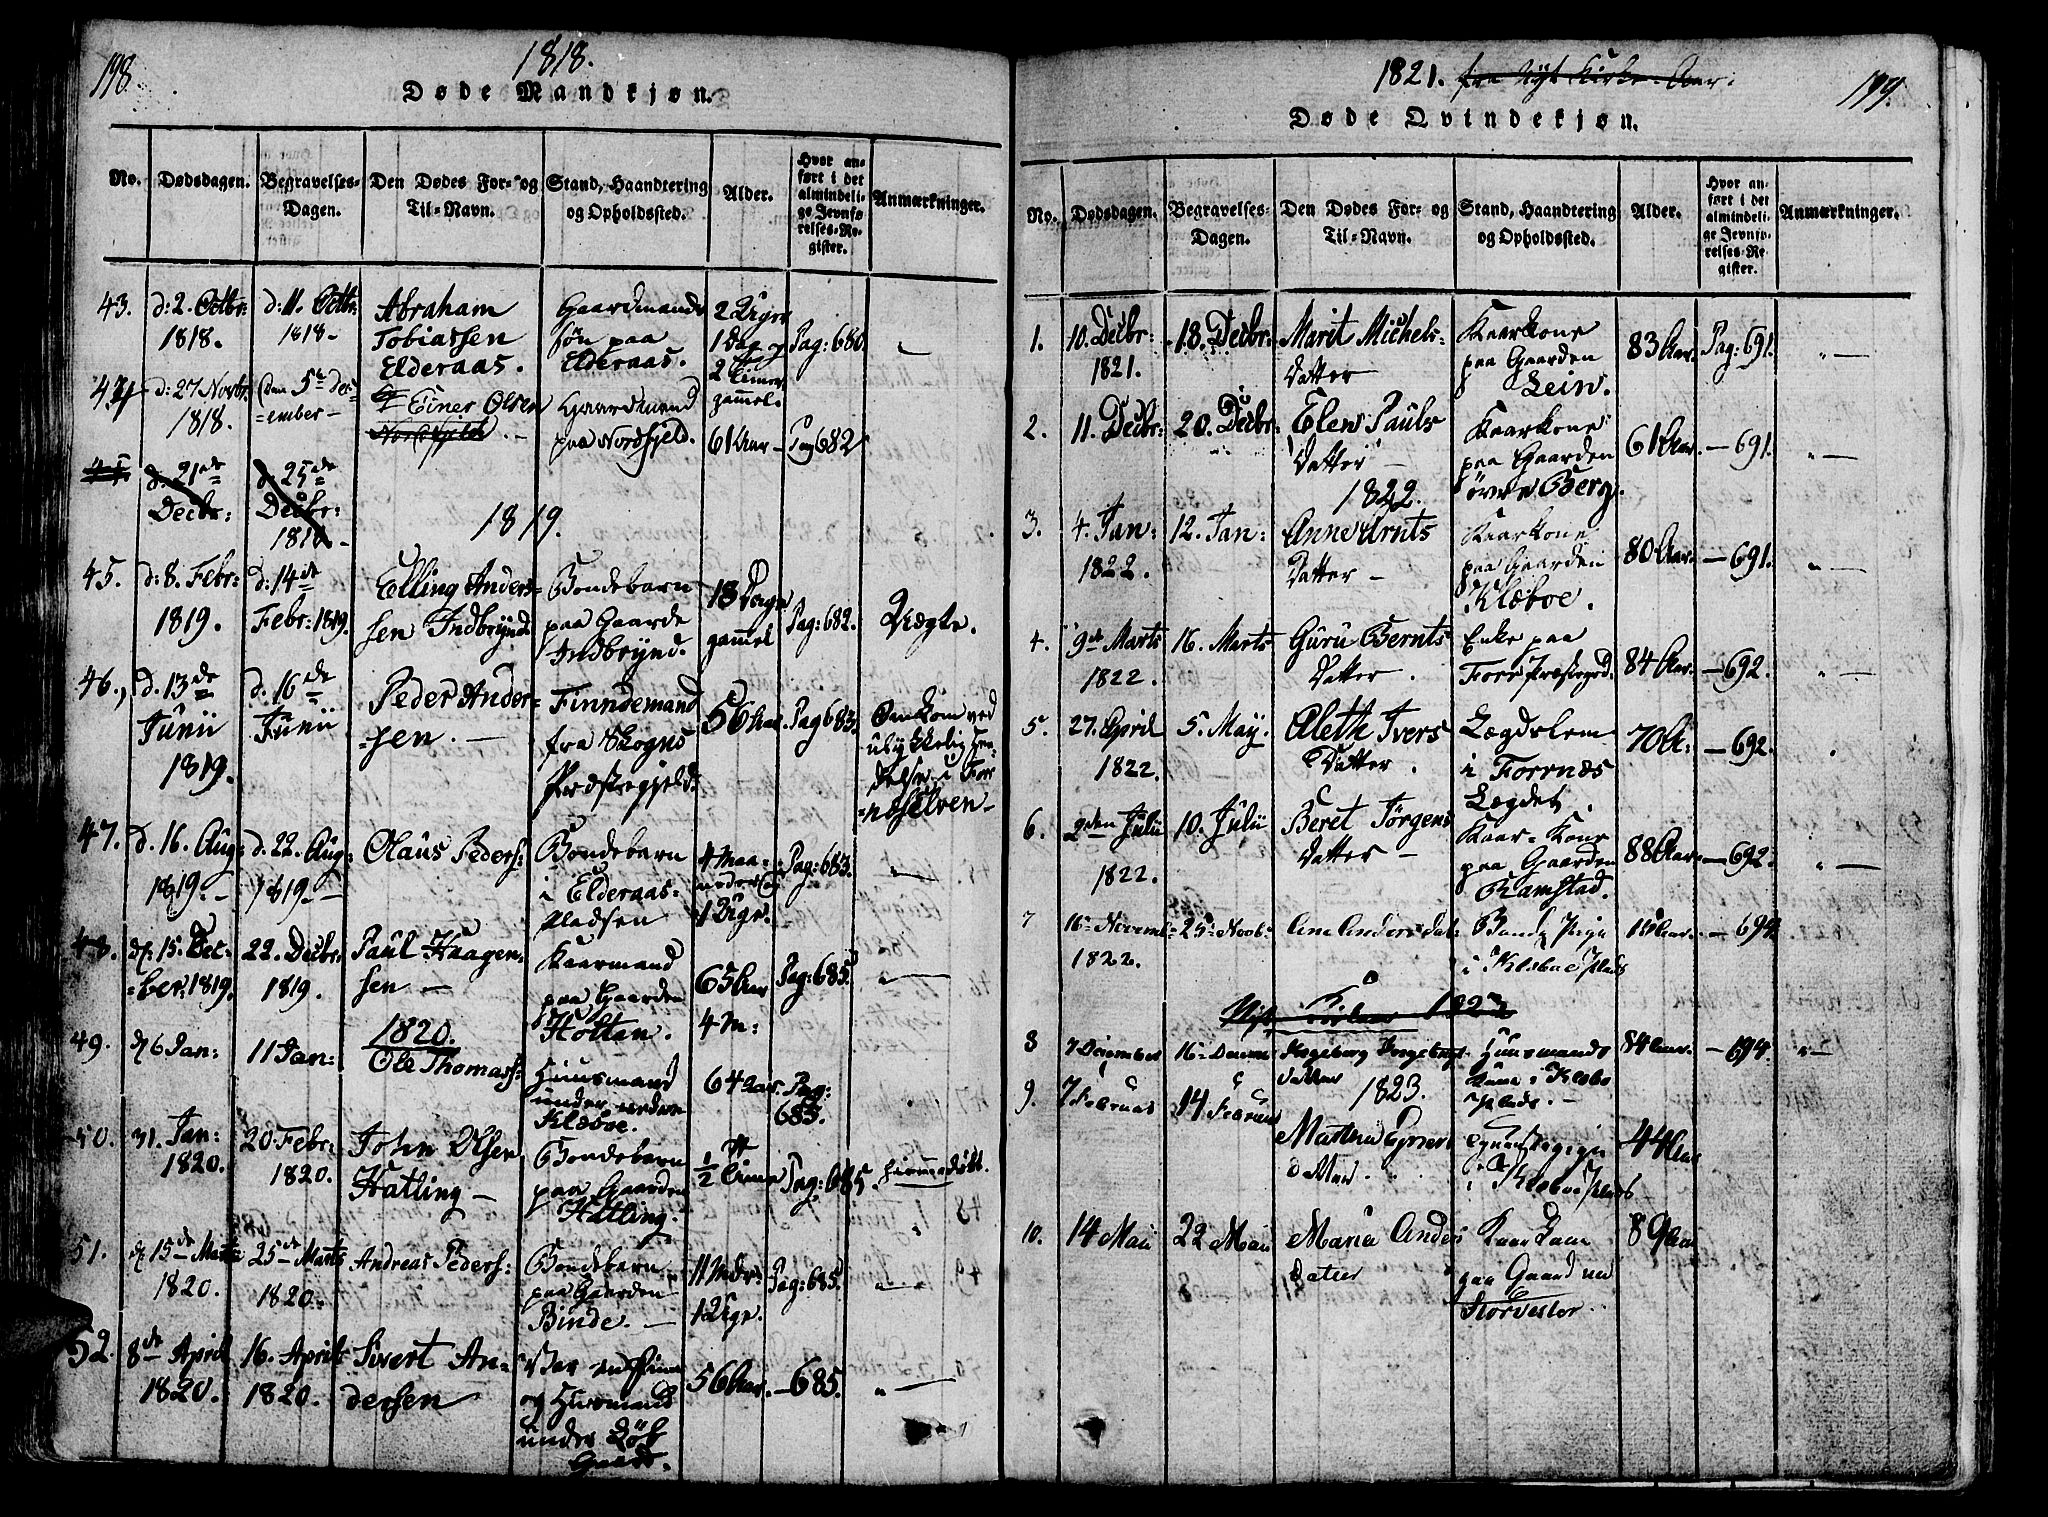 198.
1818.
Døde Mandkjøn.
No.
Dødsdagen.
Begravelses-
Dagen.
Den Dødes For- og
Til-Navn.
Stand, Haandtering
og Opholdssted.
Alder.
Hvor an-
ført i det
almindeli-
ge Jevnfø-
relses-Re-
gister.
Anmærkninger.
43.
d: 2. Octbr:
1818.
d: 11. Octbr:
1818.
Abraham
Tobiassen
Elderaas.
Gaardmands
søn paa
Elderaas.
2 Uger
1 Dag og
2 Timer
gammel.
Pag: 680
44
d: 27 Novbr:
1818.
den 5te Dec-
=ember
Einer Olsen
Nordfjeld
Gaardmand
paa Nordfjeld.
61 Aar
Pag 682
45
d. 21de
Decbr:
d. 25de
Decbr:
1818.
1819.
45.
d: 8. Febr:
1819.
d: 14de
Febr: 1819.
Elling Anders=
sen Indbrynd
Bondebarn
paa Gaarde
Indbrynd.
13 Dage
gammel
Pag: 682.
Uægte.
46.
d. 13de
Junii
1819.
d. 16de
Junii
Peder Ander=
=sen.
Finndemand
fra Skogns
Præstegjeld.
56 Aar.
Pag 683.
Omkom ved
ulykkelig Hen
delse i For
=næselven
47.
d. 16. Aug:
1819.
d. 22. Aug:
1819.
Olaus Peders:
Bondebarn
i Elderaas=
Pladsen
4 Maa-
neder og
1 Uge.
Pag: 683.
48.
d. 15. Dec-
=ber. 1819.
22. Decbr:
1819.
Paul Haagen-
sen
Kaarmand
paa Gaarden
Holtan.
65 Aar
4 M:
Pag: 685.
1820.
49.
d. 6 Jan:
11 Jan:
Ole Thomass:
Huusmand
under nedere
Klæboe.
64 Aar.
Pag:
685.
50.
31. Jan:
1820.
20 Febr:
1820.
John Olsen
Hatling
Bondebarn
paa Gaarden
Hatling.
1/2 Time
Pag: 685.
Hiemmedøbt.
51.
d. 15de Marts
1820.
25de Marts
1820.
Andreas Peders:
Bondebarn
paa Gaarden
Binde.
11 Mdr:
1 Uge.
Pag: 685.
52.
8de April
1820.
16. April
1820.
Sivert An-
dersen
og Huusmand
under
56 Aar.
685.
199.
1821. fra Nyt Kirke-Aar:
Døde Qvindekjøn.
No.
Dødsdagen.
Begravelses-
Dagen.
Den Dødes For- og
Til-Navn.
Stand, Haandtering
og Opholdssted.
Alder.
Hvor an-
ført i det
almindeli-
ge Jevnfø-
relses-Re-
gister.
Anmærkninger.
1.
10. Decbr:
1821.
18. Decbr.
Marit Michels-
Datter
Kaarkone
paa Gaarden
Lein.
83 Aar.
Pag: 691.
2.
11. Decbr:
20. Decbr:
Elen Pauls
Datter
Kaarkone
paa Gaarden
øvre Berg.
61 Aar.
691.
1822.
3.
4. Jan:
1822.
12. Jan:
Anne Arnts
Datter
Kaarkone
paa Gaarden
Klæboe.
80 Aar.
691.
4.
9de Marts
1822.
16. Marts
Guru Bernts
Datter.
Enke paa
Forr Præstegrd
84 Aar.
692.
5.
27. April
1822.
5. May.
Aleth Ivers
Datter.
Lægdslem
i Forrnæs
Lægdet.
70 A:
692.
6.
2den Julii
1822.
10. Julii
Beret Jørgens
Datter
Kaar-Kone
paa Gaarden
Ramstad.
88 Aar.
692.
7
16de Novemb:
1822.
25de Novbr:
Ane Anders dat.
Bonde Pige
i Kleboe Plads
694.
1823
8
7 December
16de Decem
Ingeborg Ingebrigt
datter
Huusmands
kone i Klebo
Plads.
84 Aar.
694.
1823.
9.
7 Februar
14 Februar
Martha
datter.
i Kleboe Plads
44 Aar
10.
14 Mai
22 Mai
Maria Anders
Datter
Kaarkone
paa Gaarden
Storvestor
89 Aar